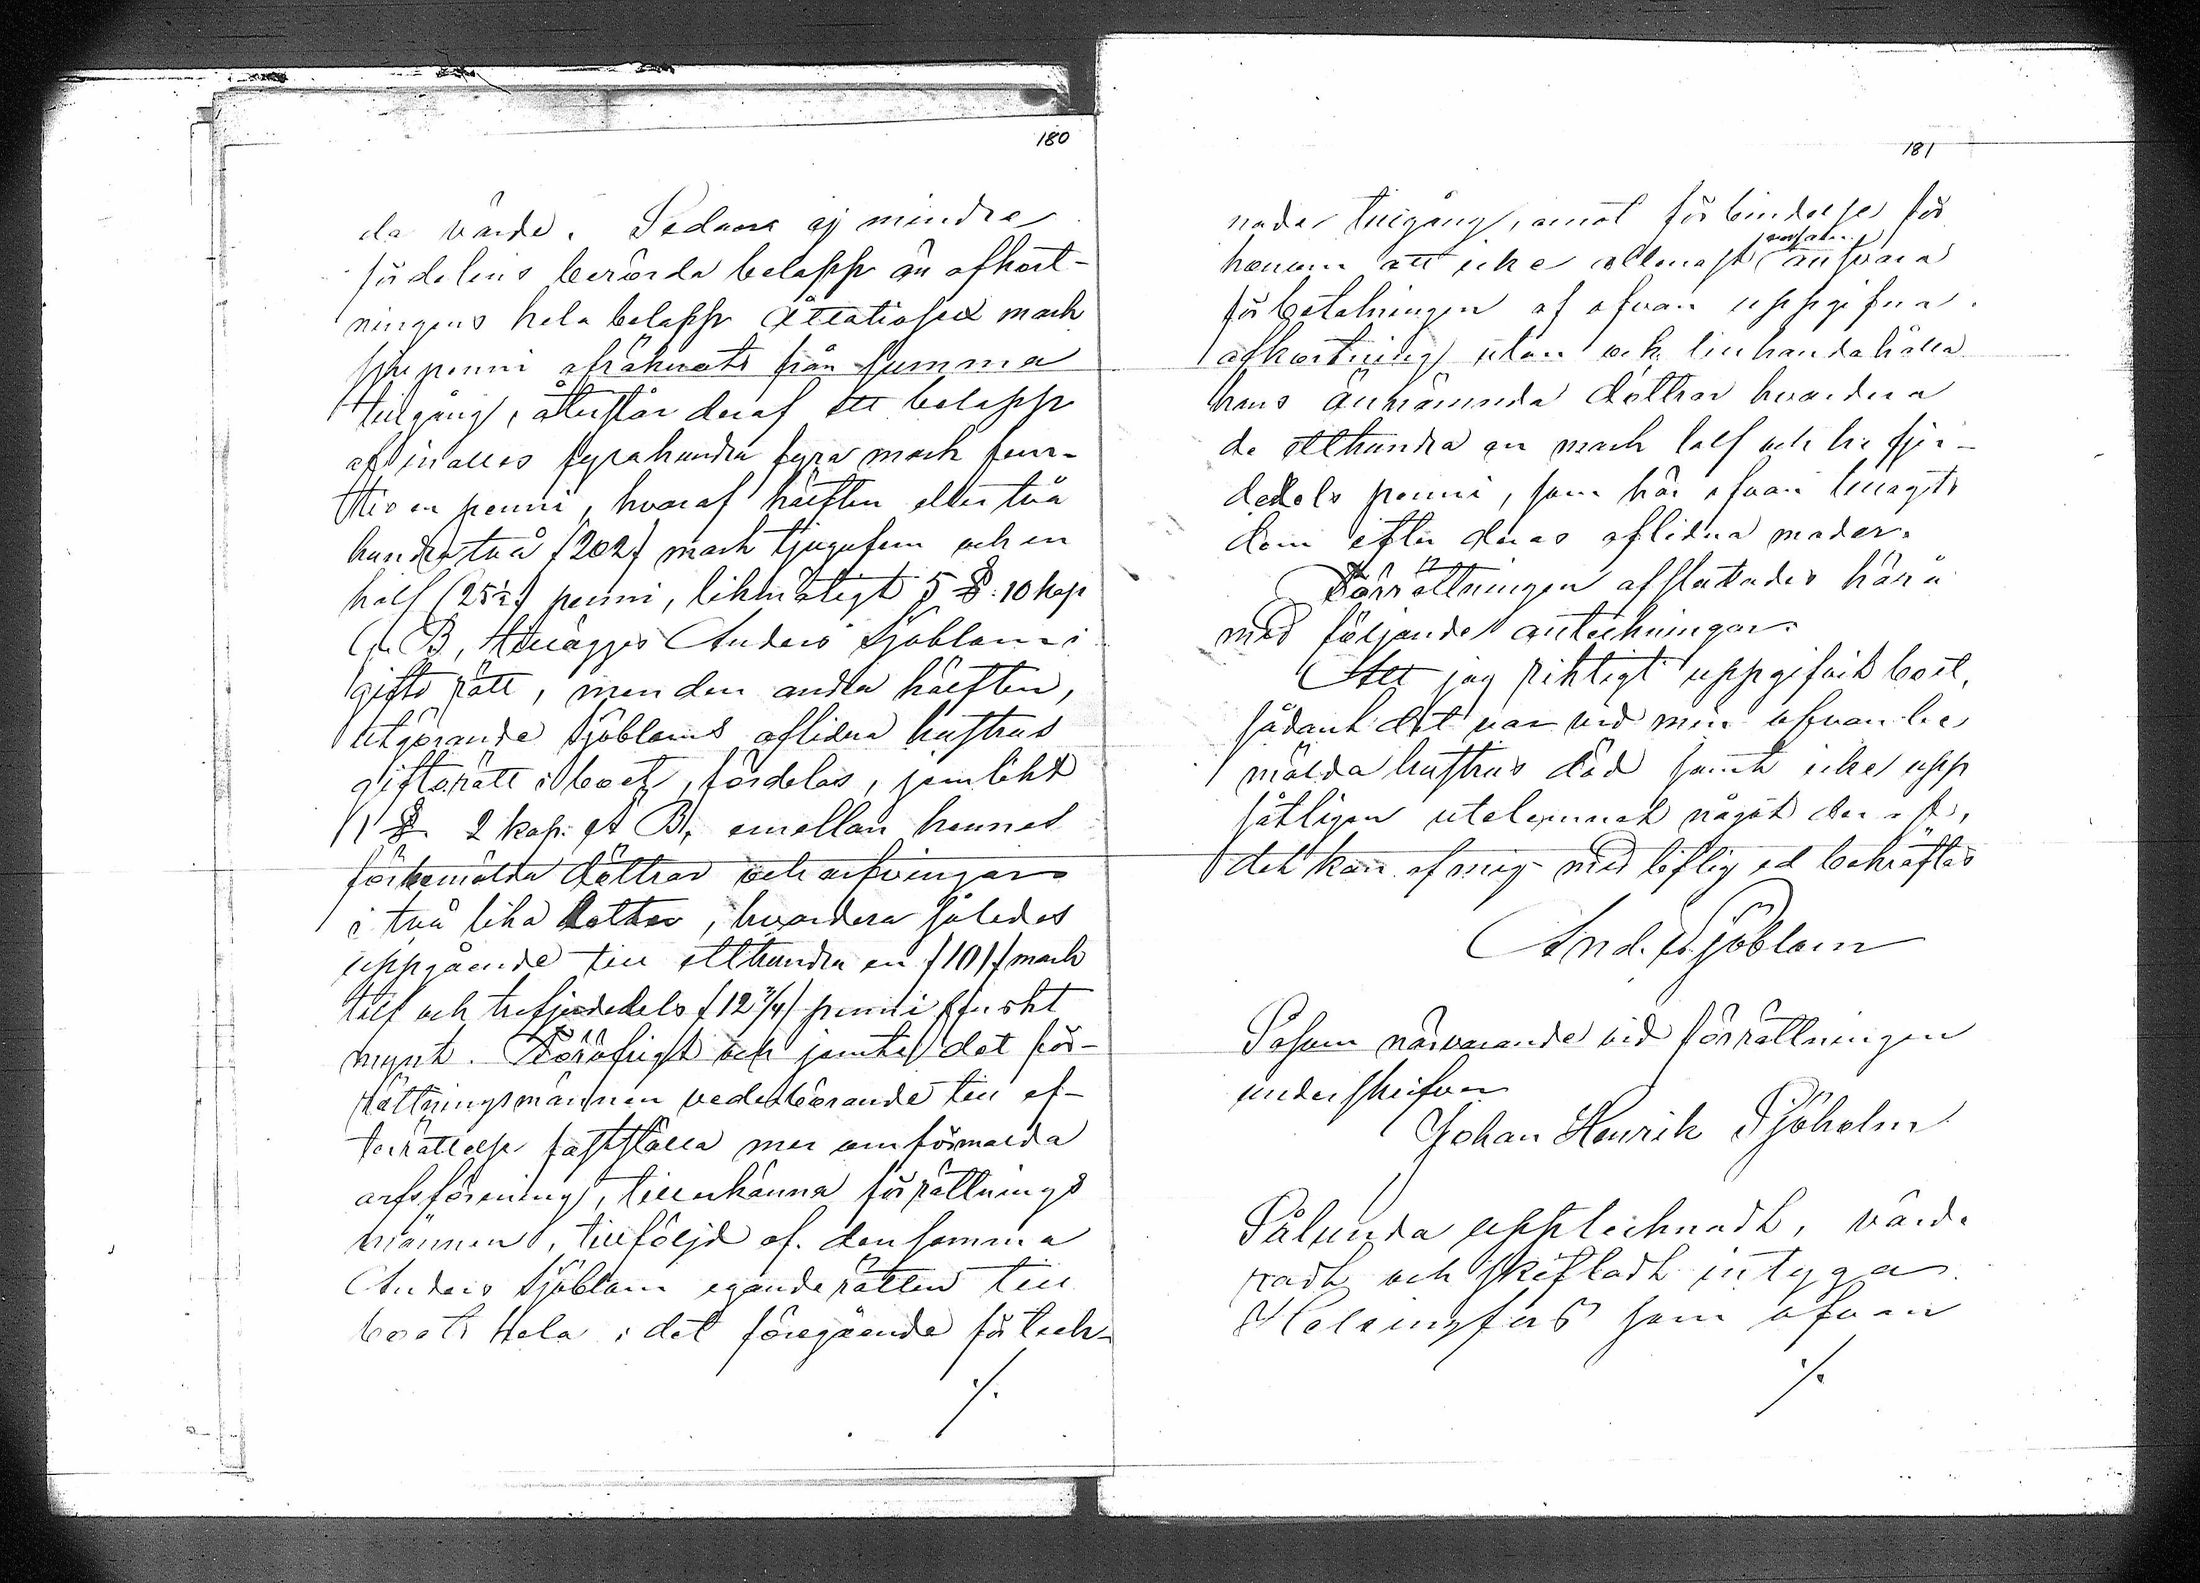 180
da värde. Sedan ej mindre
fördelens berörda belopp än afkort-
ningens hela belopp åttatiosex mark
sju penni afräknats från summa
tillgång, återstår deraf ett belopp
af inalles fyrahundra fyra mark fem-
tio en penni, hvaraf hälften eller två
hundra två /202/ mark tjugufem och en
half (25½) penni, likmätigt 5 §. 10 kap
G. B, tillägges Anders Sjöblom i
gifto rätt, men den andra hälften,
utgörande Sjöbloms aflidna hustrus
giftorätt i boet, fördelas, jemlikt
1 §. 2 kap. Ä B, emellan hennes
förbemälda döttrar och arfvingar
i två lika lotter, hvardera således
uppgående till etthundra en /101/ mark
tolf och trefjerdedels /12 3/4/ penni finskt
mynt. Föröfrigt och jemte det för-
rättningsmännen vederbörande till ef-
terrättelse fastställa mer omförmälda
arfsförening, tillerkänna förrättnings
männen, tillföljd af densamma
Anders Sjöblom eganderätten till
boets hela i det föregående förteck-
./.
181
nade tillgång, emot förbindelse för
honom att icke allenast ansvara
för betalningen af ofvan uppgifna
afkortning utan ock tillhandahålla
hans ännämnda döttrar hvardera
de etthundra en mark tolf och tre fjer-
dedels penni, som här ofvan tillagts
dem efter deras aflidna moder.
Förrättningen afslutades härå
med följande anteckningar.
Att jag riktigt uppgifvit boet,
sådant det var vid min ofvanbe
mälda hustrus död samt icke upp
såtligen utelemnat något deraf,
det kan af mig med liflig ed bekräftas
And. Sjöblom
Såsom närvarande vid förrättningen
underskrifver
Johan Henrik Sjöholm
Sålunda upptecknadt, värde
radt och skiftadt intyga
Helsingfors som ofvan
./.